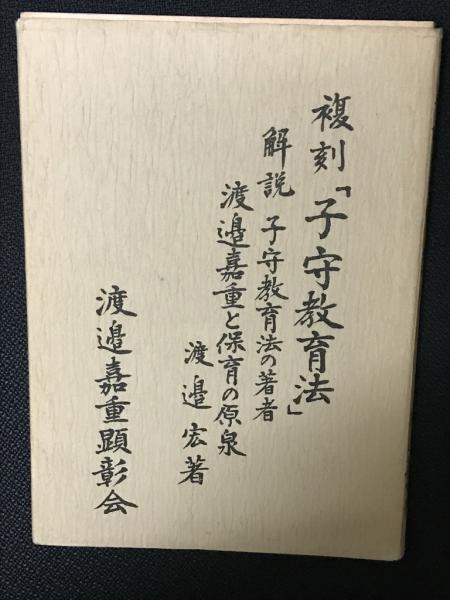 複刻「子守教育法」
解説 子守教育法の著者
渡邉嘉重と保育の原泉
渡邉宏著
渡邉嘉重顕彰会